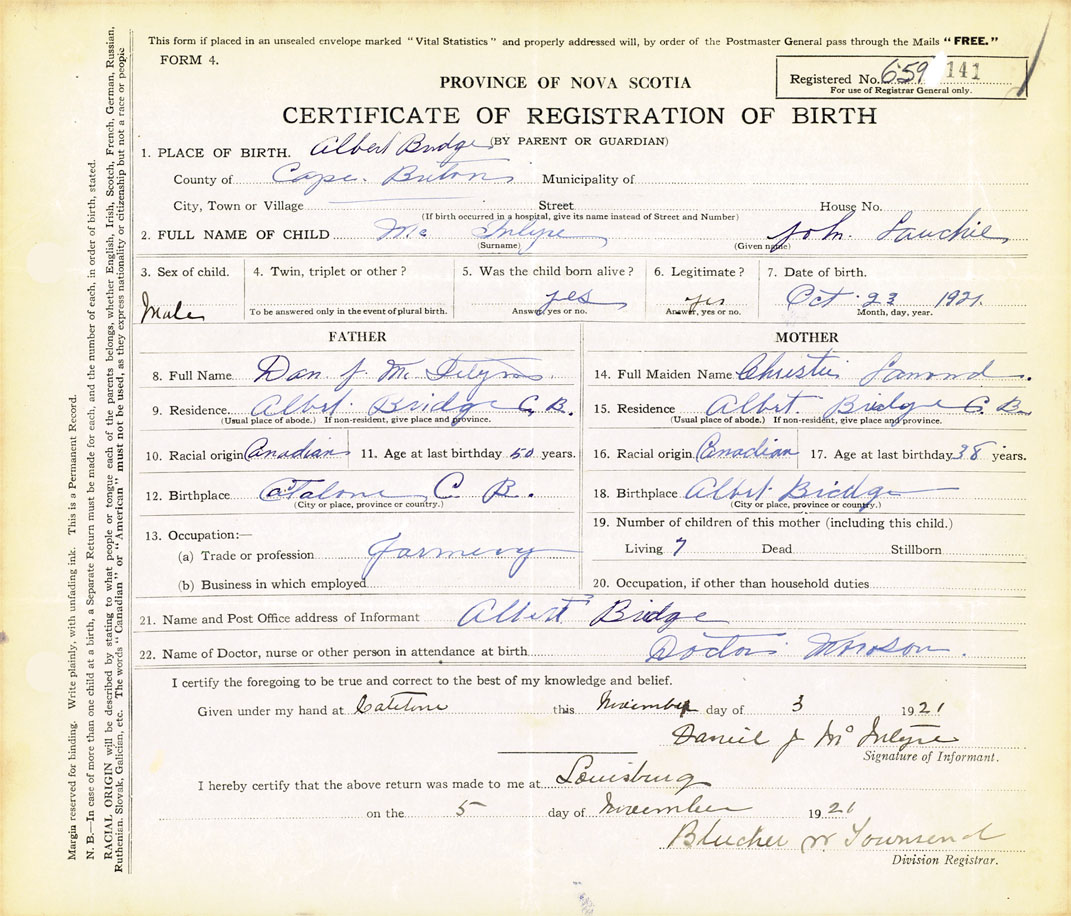 This form if placed in an unsealed envelope marked "Vital Statistics" and properly addressed will, by order of the Postmaster General pass through the Mails "FREE."
FORM 4.
Registered No. 659 141
For use of Registrar General only.
PROVINCE OF NOVA SCOTIA
CERTIFICATE OF REGISTRATION OF BIRTH
(BY PARENT OR GUARDIAN)
1. PLACE OF BIRTH. Albert Bridge
County of Cape Briton Municipality of
City, Town or Village Street House No.
(If birth occurred in a hospital, give its name instead of Street and Number)
2. FULL NAME OF CHILD Mc Intyre John Lauchie
(Surname) (Given name)
3. Sex of child. 4. Twin, triplet or other? 5. Was the child born alive? 6. Legitimate? 7. Date of birth.
Male yes yes Oct 23 1921.
To be answered only in the event of plural birth. Answer, yes or no. Answer, yes or no. Month, day, year.
FATHER MOTHER
8. Full Name Dan J. Mc 14. Full Maiden Name Christie Lamond.
9. Residence. Albert Bridge C. B. 15. Residence Albert Bridge C. B.
(Usual place of abode.) If non-resident, give place and province. (Usual place of abode.) If non-resident, give place and province.
10. Racial origin Canadian 11. Age at last birthday 50 years. 16. Racial origin Canadian 17. Age at last birthday 38 years.
12. Birthplace Catalone C. B. 18. Birthplace Albert Bridge
(City or place, province or country.) (City or place, province or country.)
13. Occupation:— 19. Number of children of this mother (including this child.)
(a) Trade or profession Living 7 Dead Stillborn
(b) Business in which employed 20. Occupation, if other than household duties
21. Name and Post Office address of Informant Albert Bridge
22. Name of Doctor, nurse or other person in attendance at birth Doctor
I certify the foregoing to be true and correct to the best of my knowledge and belief.
Given under my hand at this November day of 3 1921
Daniel J Mc Intyre
Signature of Informant.
I hereby certify that the above return was made to me at Louisburg
on the 5 day of November 1921
Blucher W Townsend
Division Registrar.
Margin reserved for binding. Write plainly, with unfading ink. This is a Permanent Record.
N. B.—In case of more than one child at a birth, a Separate Return must be made for each, and the number of each, in order of birth, stated.
RACIAL ORIGIN will be described by stating to what people or tongue each of the parents belongs, whether English, Irish, Scotch, French, German, Russian,
Ruthenian, Slovak, Galician, etc. The words "Canadian" or "American" must not be used, as they express nationality or citizenship but not a race or people